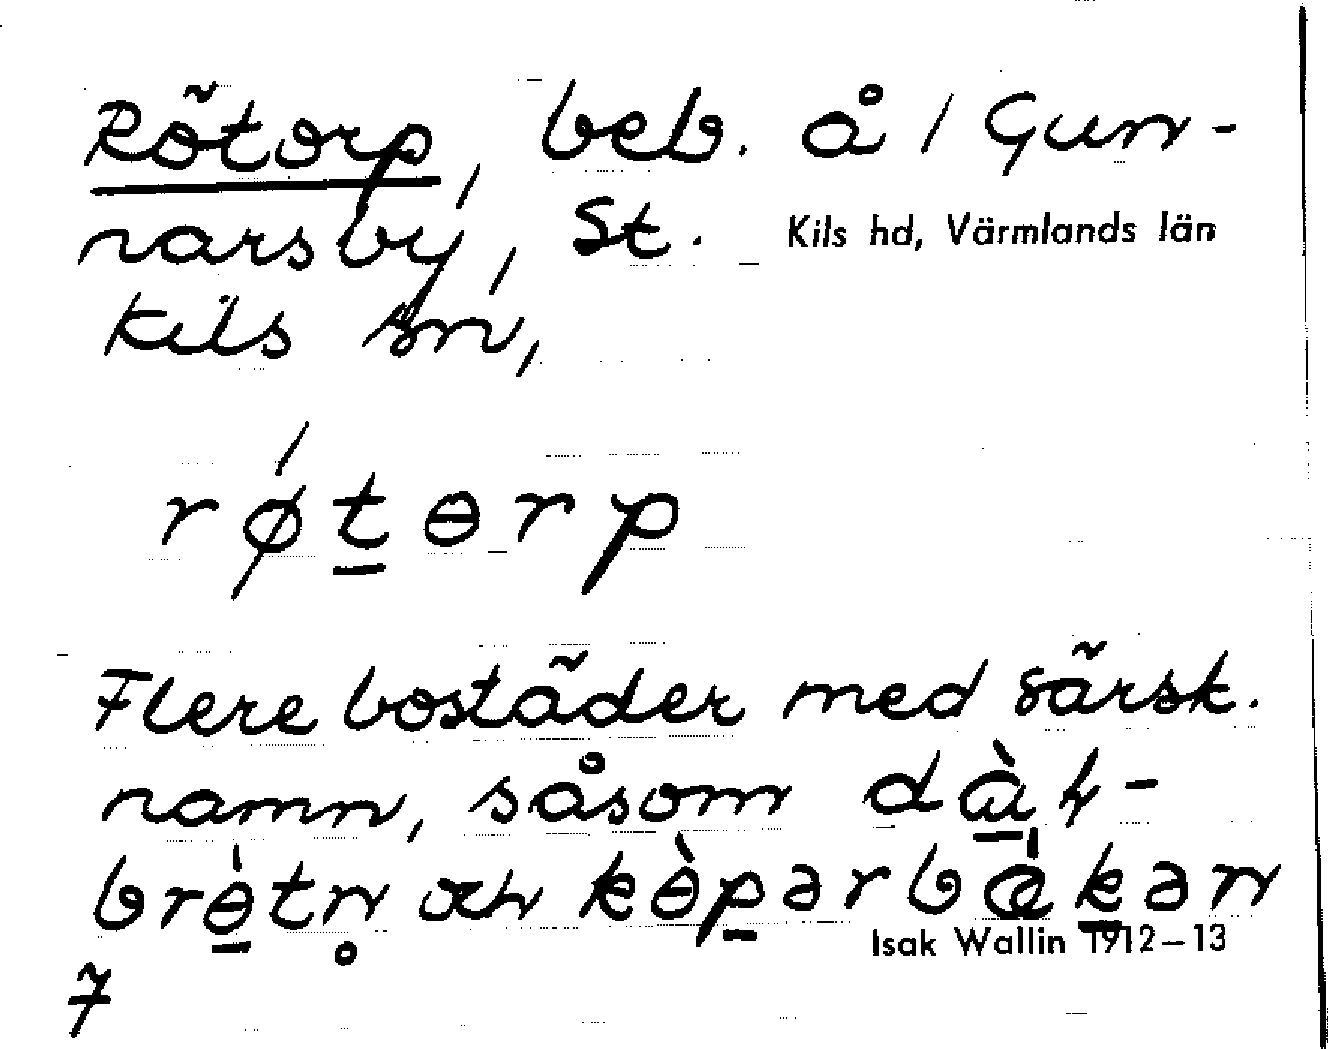 Rötorp, beb. å / Gun-
narsby, St. Kils hd, Värmlands län
Kils sn,
rǿt̲ɵrp
Flere bostäder med särsk.
namn, såsom
och
Isak Wallin 1912–13
7